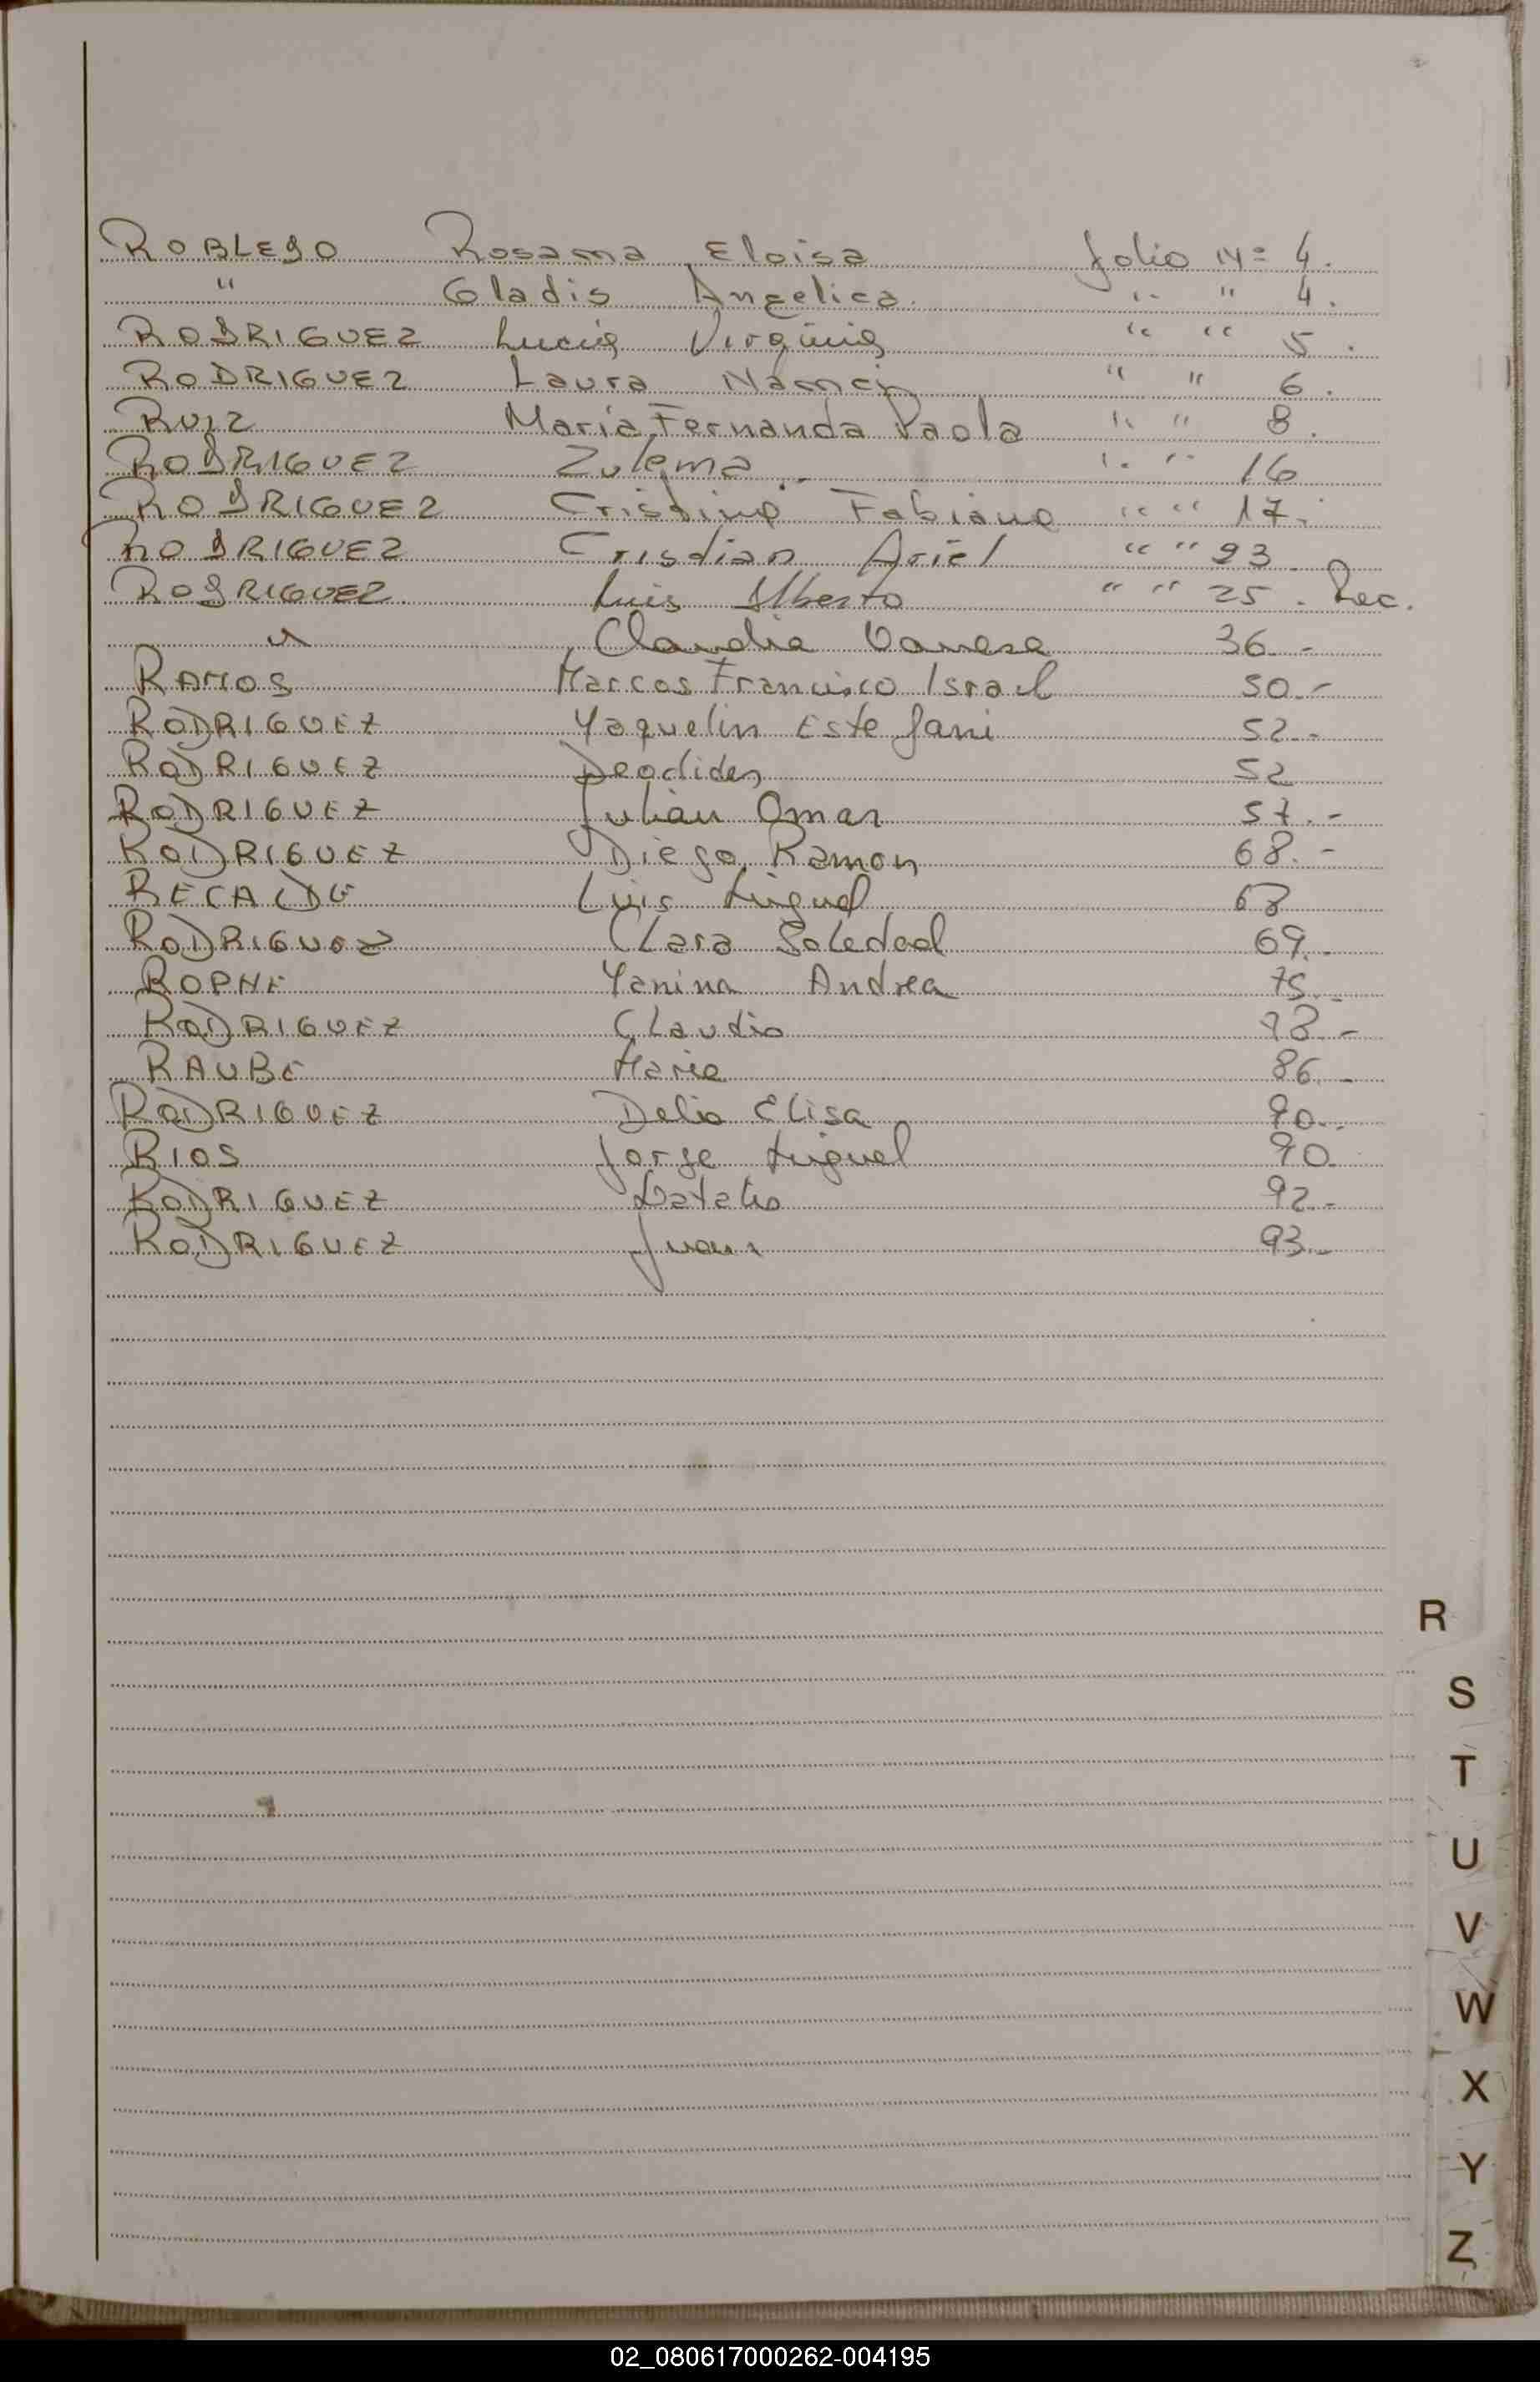 ROBLEDO Rosana Eloisa folio Nº 4.
" Gladis Angelica. " " 4.
RODRIGUEZ Lucia Virginia " " 5.
RODRIGUEZ Laura Nancy " " 6.
RUIZ Maria Fernanda Paola " " 8.
RODRIGUEZ Zulema " " 16
RODRIGUEZ Cristina Fabiana " " 17.
RODRIGUEZ Cristian Ariel " " 23
RODRIGUEZ Luis Alberto " " 25. Rec.
" Claudia Vanesa 36.-
RAMOS Marcos Francisco Israel 50.-
RODRIGUEZ Yaquelin Estefani 52.-
RODRIGUEZ 52
RODRIGUEZ Julian Omar 57.-
RODRIGUEZ Diego Ramon 68.-
RECALDE Luis Miguel 68
RODRIGUEZ Clara Soledad 69.-
Yanina Andrea 75.-
RODRIGUEZ Claudio
RAUBE Maria 86.-
RODRIGUEZ Delia Elisa 90.-
RIOS Jorge Miguel 90
RODRIGUEZ Natalio 92.-
RODRIGUEZ Juan 93.-
R
S
T
U
V
W
X
Y
Z
02_080617000262-004195